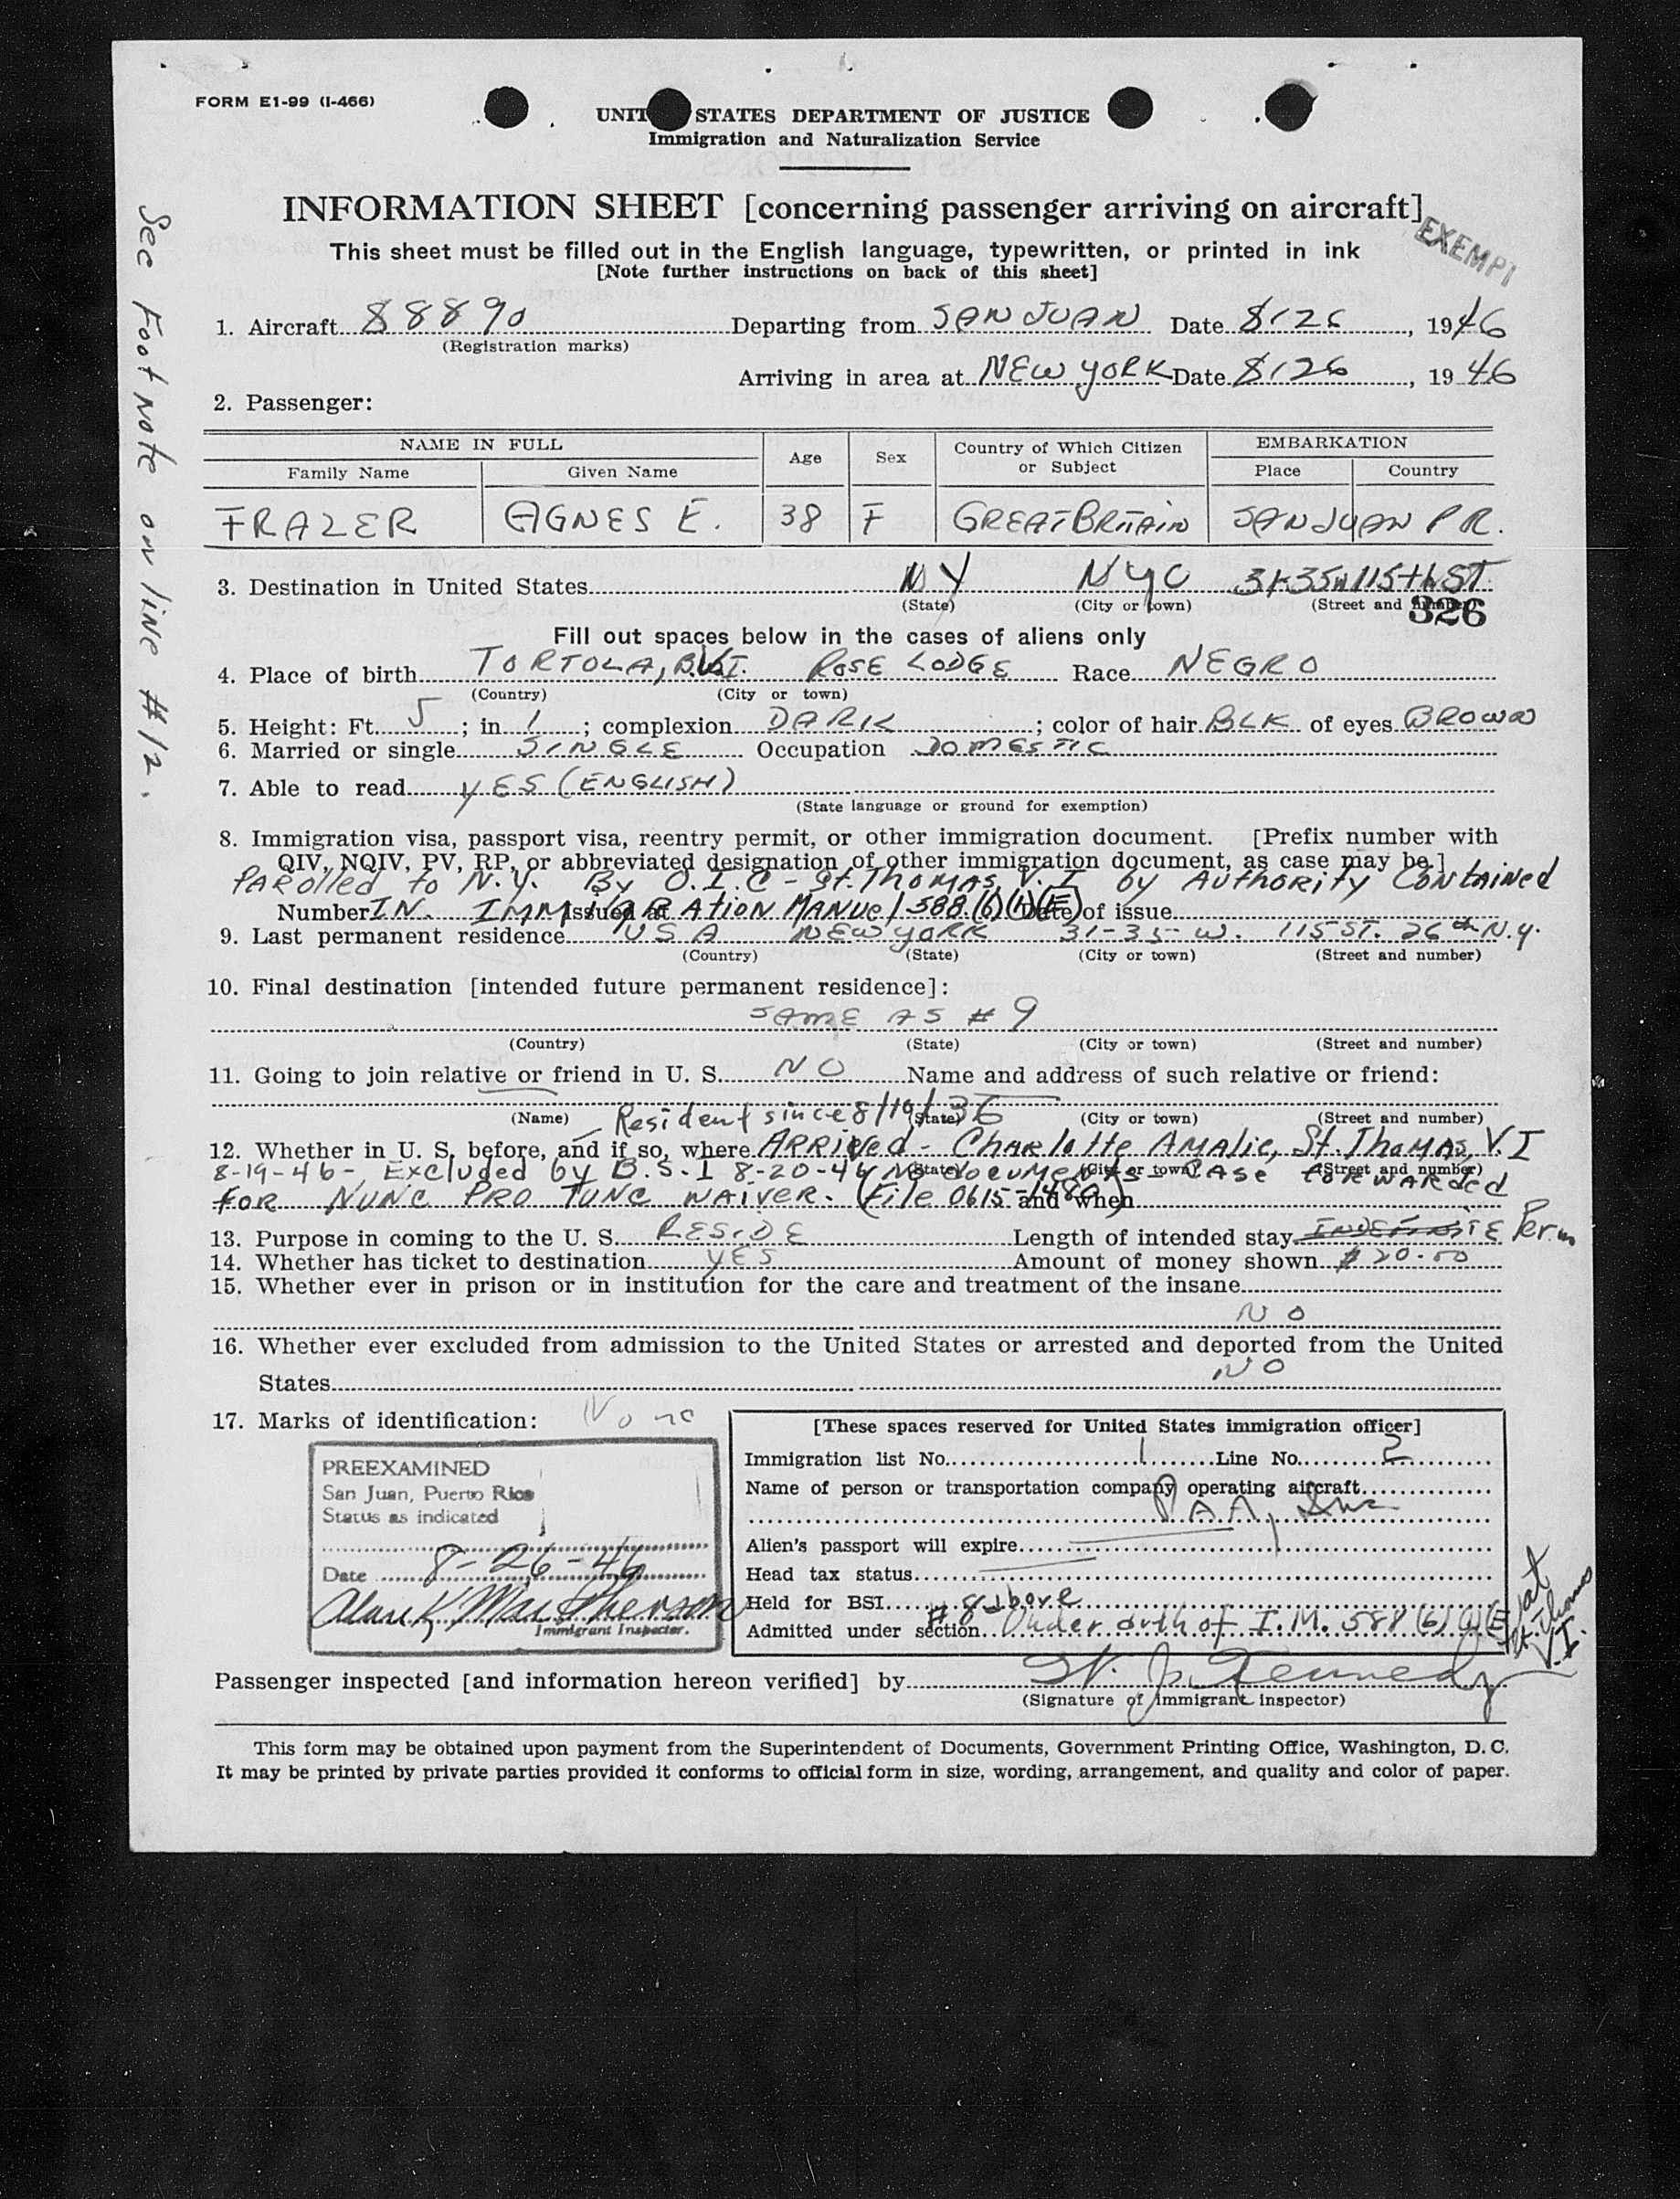 FORM E1-99 (I-466)
UNIT STATES DEPARTMENT OF JUSTICE
Immigration and Naturalization Service
INFORMATION SHEET [concerning passenger arriving on aircraft]
EXEMPT
This sheet must be filled out in the English language, typewritten, or printed in ink
[Note further instructions on back of this sheet]
See Foot Note on line #12.
1. Aircraft 88890 Departing from SAN JUAN Date 8/26, 1946
(Registration marks)
Arriving in area at NEW YORK Date 8/26, 1946
2. Passenger:
NAME IN FULL Age Sex Country of Which Citizen or Subject EMBARKATION
Family Name Given Name Place Country
FRAZER AGNES E. 38 F GREAT BRITAIN SAN JUAN P.R.
3. Destination in United States NY NYC 31-35 W 115th ST.
(State) (City or town) (Street and number)
326
Fill out spaces below in the cases of aliens only
4. Place of birth TORTOLA, B.V.I. ROSE LODGE Race NEGRO
(Country) (City or town)
5. Height: Ft. 5; in. 1; complexion DARK; color of hair BLK of eyes BROWN
6. Married or single SINGLE Occupation DOMESTIC
7. Able to read YES (ENGLISH)
(State language or ground for exemption)
8. Immigration visa, passport visa, reentry permit, or other immigration document. [Prefix number with
QIV, NQIV, PV, RP, or abbreviated designation of other immigration document, as case may be.]
PAROlled to N.Y. By O.I.C - St. THOMAS, V.I by AUTHORITY CONtAINed
Number IN. IMMIGRATION MANUel 588.(6)(1)(E) issued at Date of issue
9. Last permanent residence USA NEW YORK 31-35-W. 115 ST. 26th N.Y.
(Country) (State) (City or town) (Street and number)
10. Final destination [intended future permanent residence]:
SAME AS #9
(Country) (State) (City or town) (Street and number)
11. Going to join relative or friend in U. S. NO Name and address of such relative or friend:
(Name) (State) (City or town) (Street and number)
Resident since 8/19/36
12. Whether in U. S. before, and if so, where ARRIVed - CHARlotte AMALIe, St. THOMAS, V.I
(State) (City or town) (Street and number)
8-19-46 - Excluded by B.S.I 8-20-46 No documents - CASe FORWARded
FOR NUNC PRO TUNC WAIVER. (File 0615-1480) and when
13. Purpose in coming to the U. S. RESIDE Length of intended stay INDEFINITE Perm
14. Whether has ticket to destination YES Amount of money shown $20.00
15. Whether ever in prison or in institution for the care and treatment of the insane
NO
16. Whether ever excluded from admission to the United States or arrested and deported from the United
States NO
17. Marks of identification: None
PREEXAMINED
San Juan, Puerto Rico
Status as indicated
Date 8-26-46
Immigrant Inspector.
[These spaces reserved for United States immigration officer]
Immigration list No. 1 Line No. 2
Name of person or transportation company operating aircraft
P A A, Inc
Alien's passport will expire
Head tax status
Held for BSI
#8 above
Admitted under section Under auth of I.M. 588 (6)(1)(E) at St. Thomas V.I.
Passenger inspected [and information hereon verified] by W. J. Kennedy
(Signature of immigrant inspector)
This form may be obtained upon payment from the Superintendent of Documents, Government Printing Office, Washington, D. C.
It may be printed by private parties provided it conforms to official form in size, wording, arrangement, and quality and color of paper.